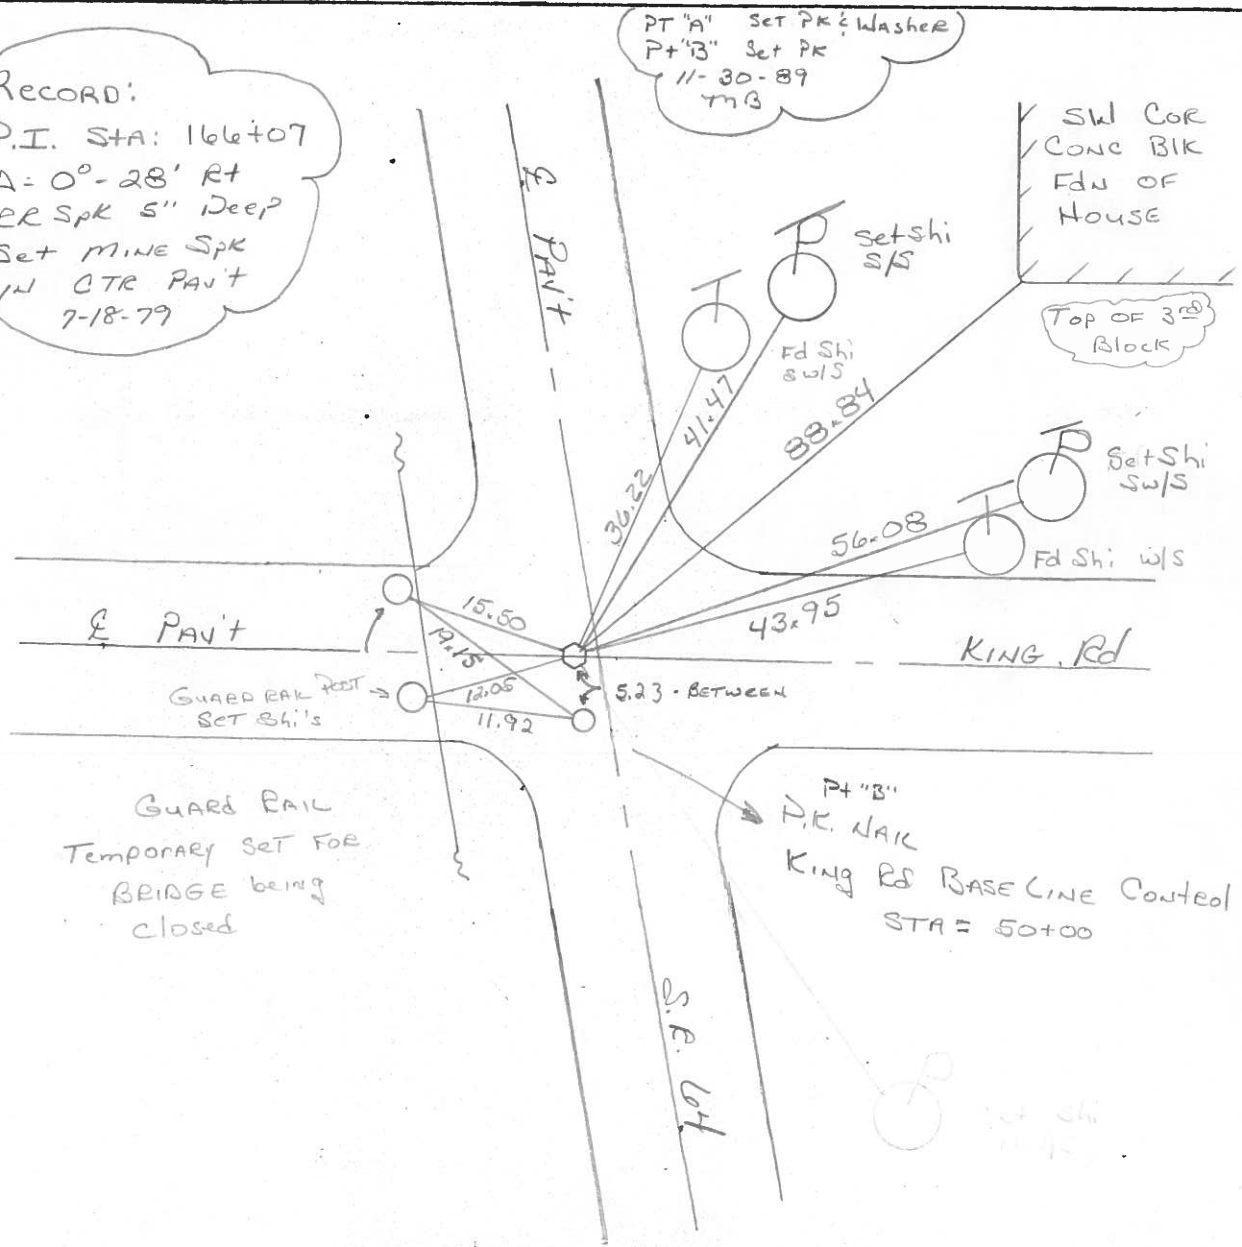 RECORD:
P.I. StA: 166+07
Δ= 0°-28' Rt
RR Spk 5" Deep
Set MINE Spk
IN CTR PAV't
7-18-79
PT "A" SET PK & WASHER
Pt "B" Set PK
11-30-89
MB
SW COR
CONC BlK
FdN OF
HOUSE
TOP OF 3rd
Block
℄ PAV't
Set Shi
S/S
Fd Shi
SW/S
36.22
41.47
88.84
Set Shi
SW/S
56.08
Fd Shi W/S
43.95
℄ PAV't
15.50
19.15
KING Rd
GUARD RAIL POST
SET Shi's
12.05
11.92
5.23 - BETWEEN
GUARd RAIL
TempORARY SET FOR
BRIDGE being
Closed
Pt "B"
P.K. NAIL
King Rd BASE LINE Control
STA = 50+00
S.R. 64
Set Shi